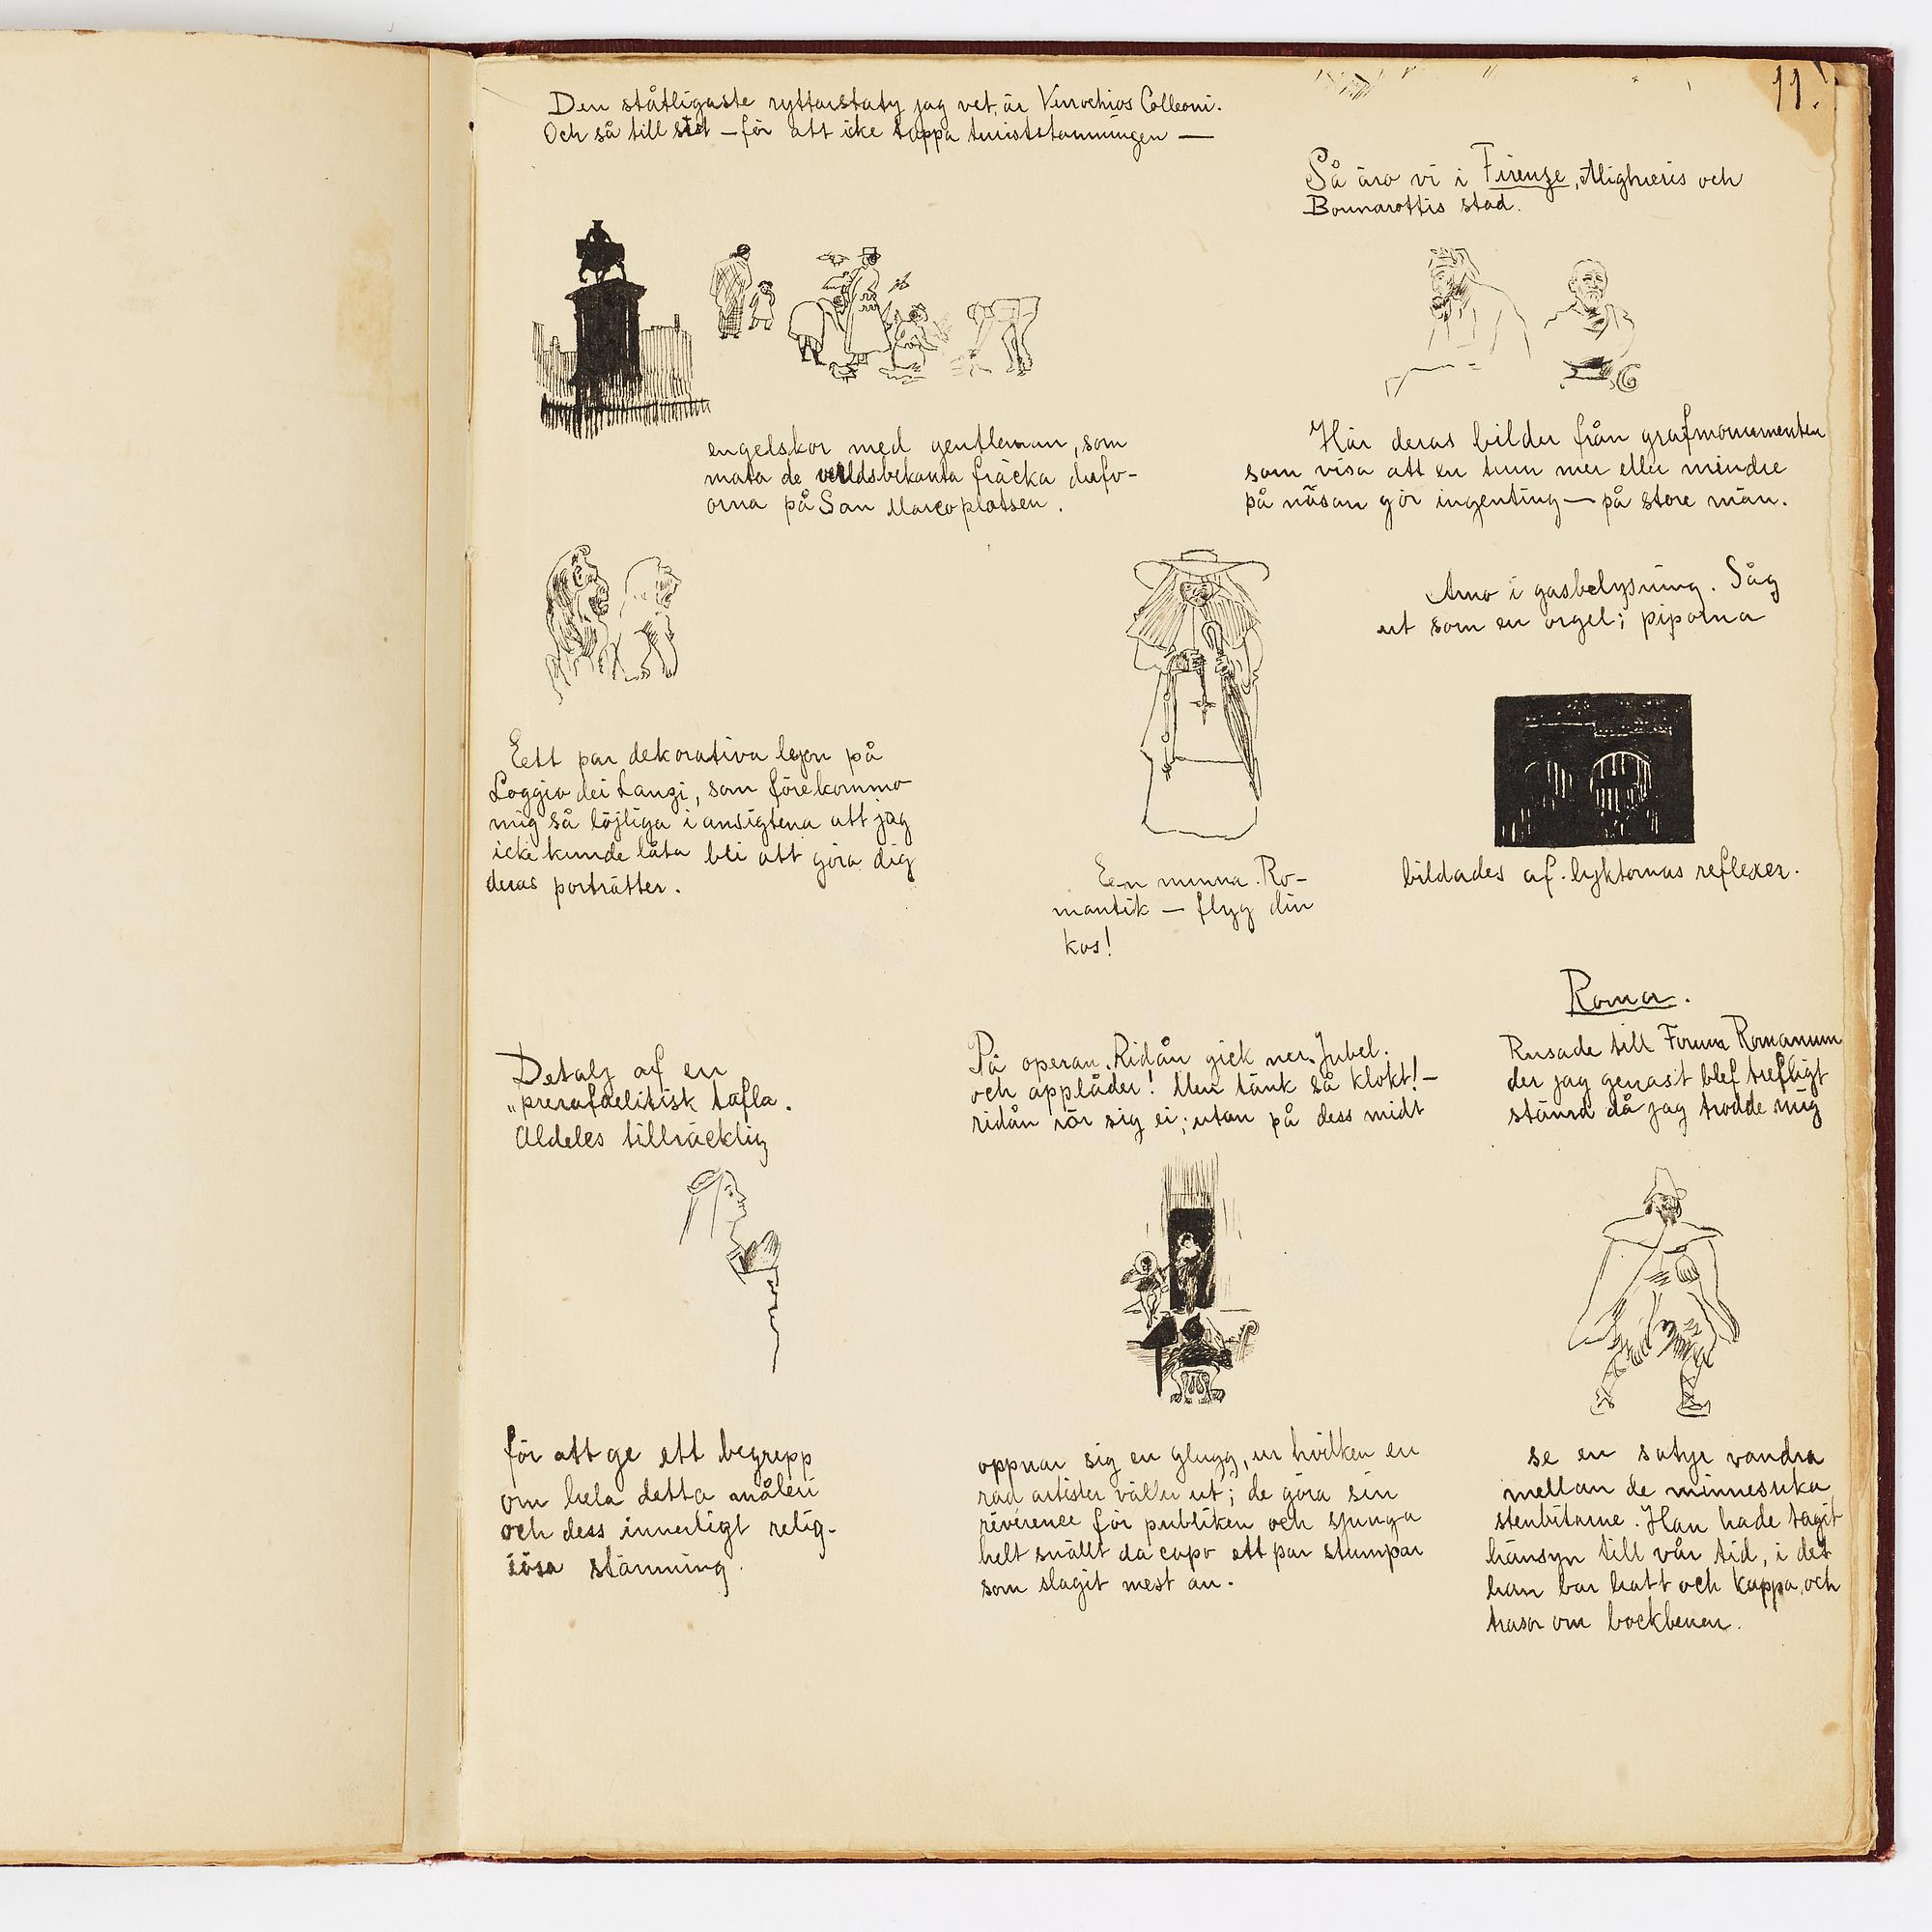 11.
Den ståtligaste ryttarstaty jag vet, är Verrochios Colleoni.
Och så till sist – för att icke tappa turiststämningen —
engelskor med gentleman, som
mata de världsbekanta fräcka dufv-
orna på San Marcoplatsen.
Så äro vi i Firenze, Alighieris och
Bounarottis stad.
Här deras bilder från grafmonumenten
som visa att en tum mer eller mindre
på näsan gör ingenting — på store män.
Ett par dekorativa lejon på
Loggia dei Lanzi, som förekommo
mig så löjliga i ansigtena att jag
icke kunde låta bli att göra dig
deras porträtter.
En nunna. Ro-
mantik — flyg din
kos!
Arno i gasbelysning. Såg
ut som en orgel; piporna
bildades af lyktornas reflexer.
Detalj af en
"prerafaelitisk tafla.
Aldeles tillräcklig
för att ge ett begrepp
om hela detta måleri
och dess innerligt relig-
iösa stämning.
På operan. Ridån gick ner. Jubel.
och applåder! Men tänk så klokt! –
ridån rör sig ej; utan på dess midt
öppnar sig en glugg, ur hvilken en
rad artister väller ut; de göra sin
révérence för publiken och sjunga
helt snällt da capo ett par stumpar
som slagit mest an.
Roma.
Rusade till Forum Romanum
der jag genast blef trefligt
stämd då jag trodde mig
se en satyr vandra
mellan de minnesrika
stenbitarne. Han hade tagit
hänsyn till vår tid, i det
han bar hatt och kappa, och
trasor om bockbenen.